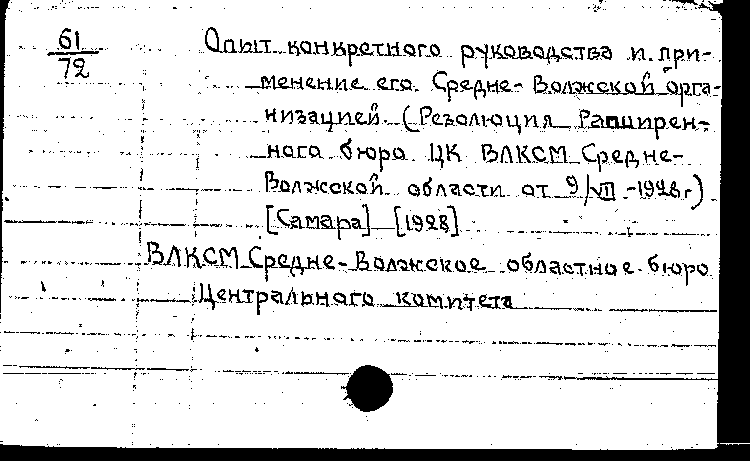 61
72
Опыт конкретного руководства и при-
менение его Средне-Волжской орга-
низацией. (Резолюция Расширен-
ного бюро ЦК ВЛКСМ Средне-
Волжской области от 9/VII-1928г)
[Самара] [1928]
ВЛКСМ Средне-Волжское областное бюро
Центрального комитета